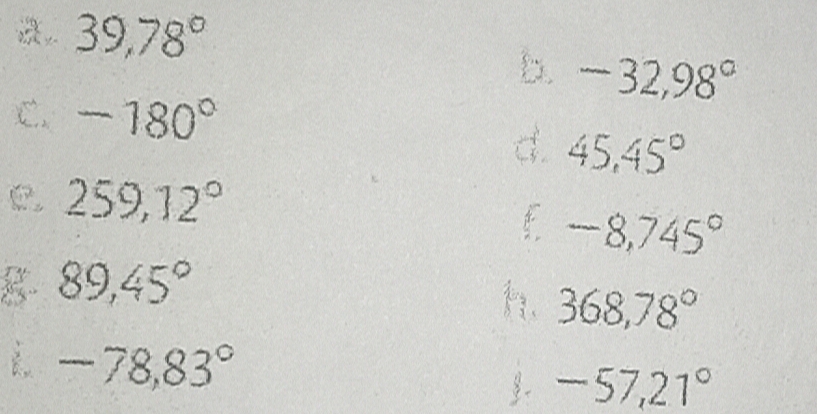 a. 39,78°
b. −32,98°
c. −180°
d. 45,45°
e. 259,12°
f. −8,745°
g. 89,45°
h. 368,78°
i. −78,83°
j. −57,21°